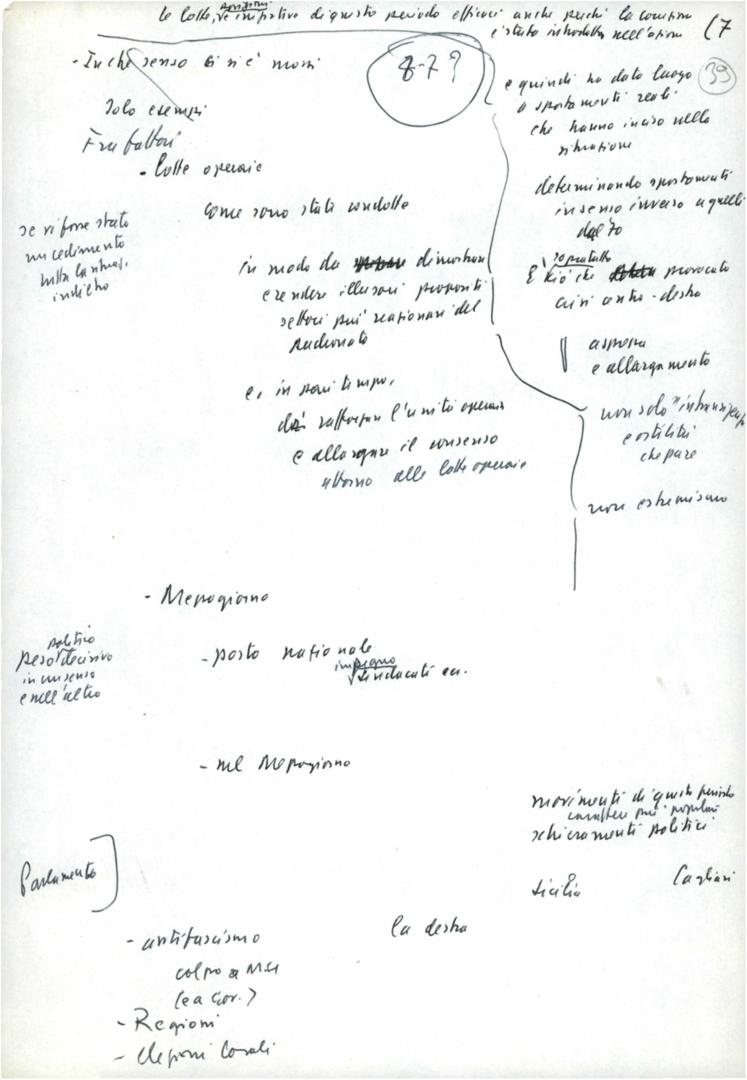 le lotte, le iniziative di questo periodo efficaci anche perché la
è stata introdotta nell'azione
(7
39
- In che senso ci si è mossi
8-7?
Solo esempi
Fra fattori
- Lotte operaie
come sono state condotte
se vi fosse stato
un cedimento
tutta la situaz.
indietro
in modo da dimostrare
e rendere illusori propositi
settori più reazionari del
padronato
e, in pari tempo,
di rafforzare l'unità operaia
e allargare il consenso
attorno alle lotte operaie
e quindi ha dato luogo
a spostamenti reali
che hanno inciso nella
situazione
determinando spostamenti
in senso inverso a quelli
del '70
soprattutto
È ciò che provocato
crisi centro-destra
asprezza
e allargamento
non solo
e ostilità
che pare
non estremismo
- Mezzogiorno
politico
peso decisivo
in un senso
e nell'altro
- posto nazionale
impegno
sindacati ecc.
- nel Mezzogiorno
movimenti di questo periodo
carattere più popolare
schieramenti politici
Sicilia
Cagliari
Parlamento
- antifascismo
la destra
colpo a MSI
(e a Gov.?)
- Regioni
- Elezioni locali